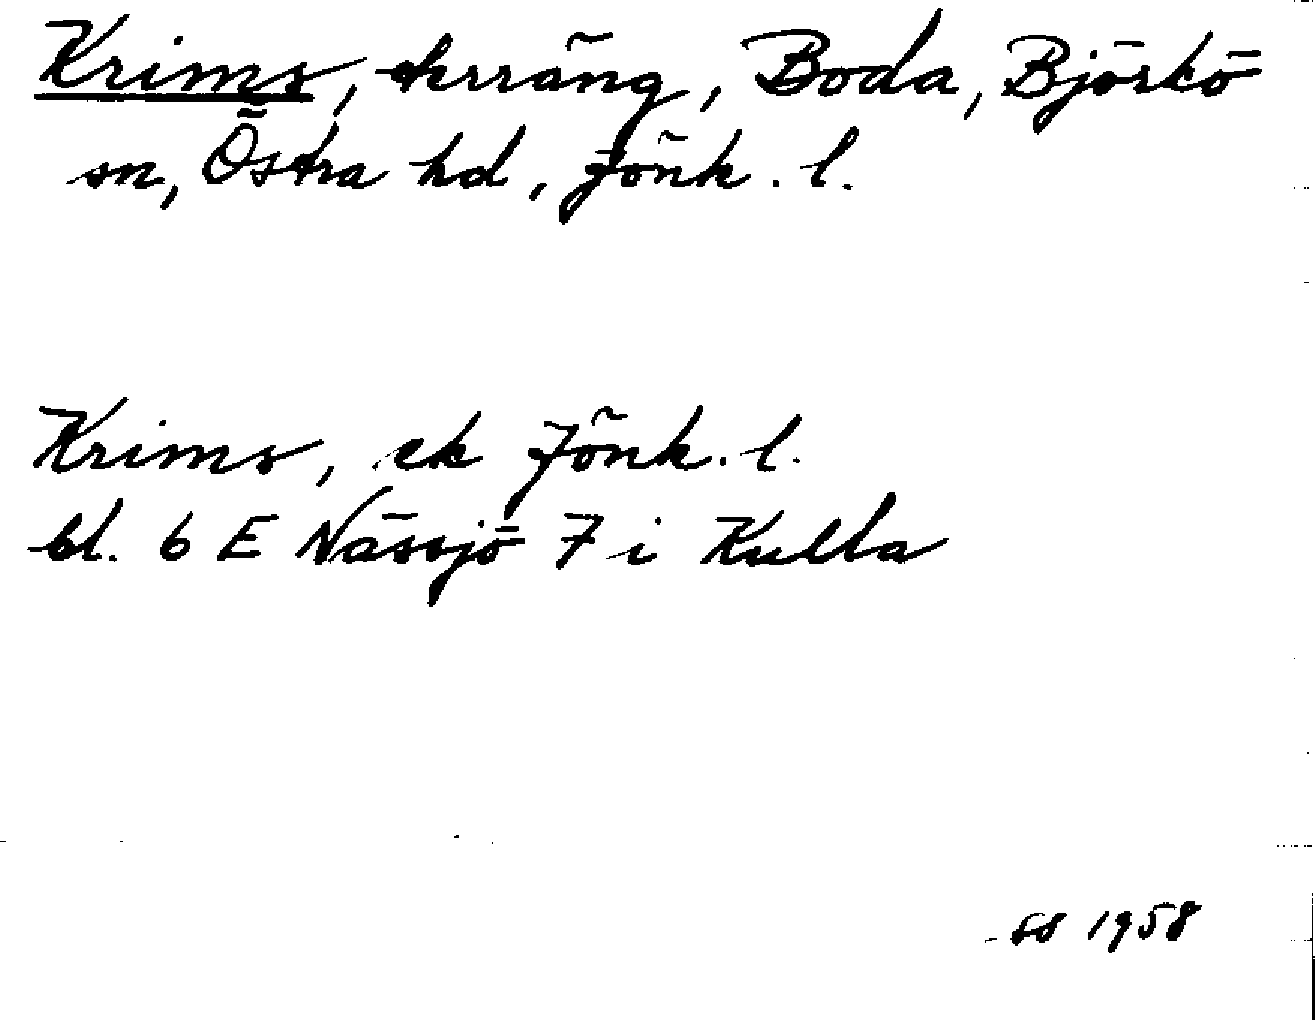 Krims, ekrräng, Boda, Björkö
sn, Östra hd, Jönk. l.
Krims, ek Jönk. l.
bl. 6 E Nässjö 7 i Kulla
SS 1958